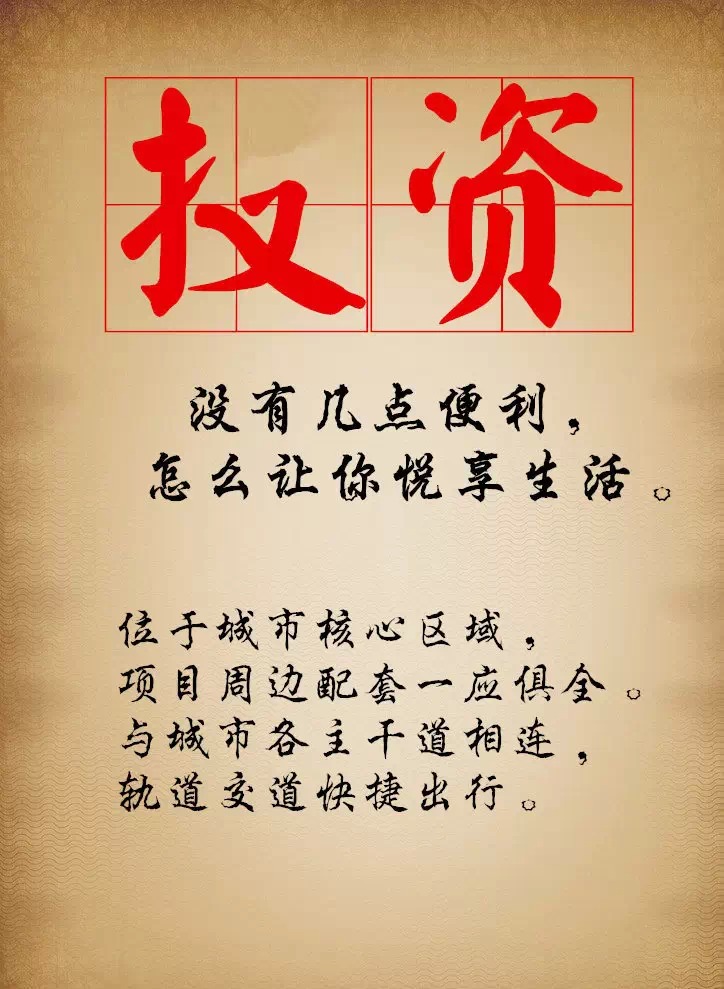 投资
没有几点便利，
怎么让你悦享生活。
位于城市核心区域，
项目周边配套一应俱全。
与城市各主干道相连，
轨道交道快捷出行。